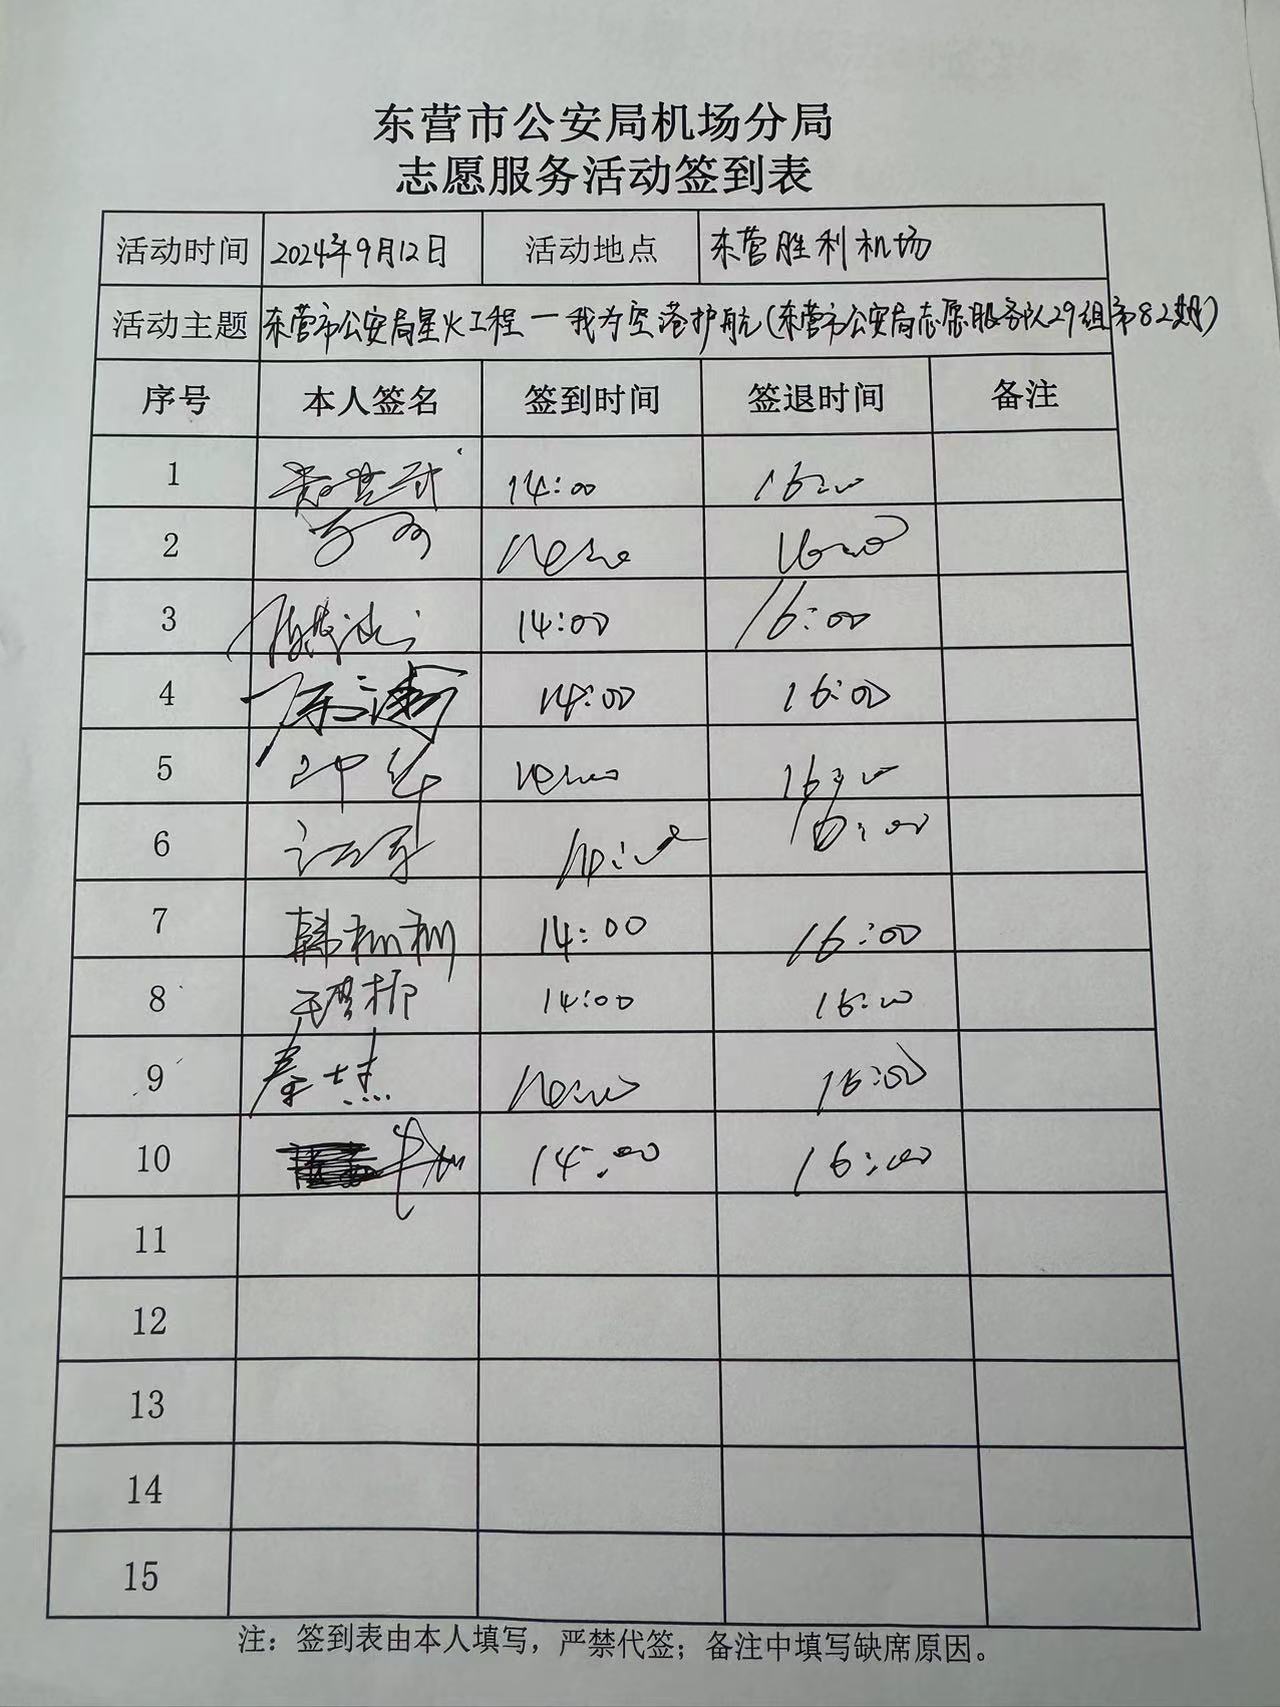 东营市公安局机场分局
志愿服务活动签到表
活动时间 2024年9月12日 活动地点 东营胜利机场
活动主题 东营市公安局星火工程一我为空港护航(东营市公安局志愿服务队29组第82期)
序号 本人签名 签到时间 签退时间 备注
1 14:00 16:00
2 14:00 16:00
3 14:00 16:00
4 陈涛 14:00 16:00
5 14:00 16:00
6 江军 14:00 16:00
7 韩栅栅 14:00 16:00
8 14:00 16:00
9 秦杰 14:00 16:00
10 14:00 16:00
11
12
13
14
15
注：签到表由本人填写，严禁代签；备注中填写缺席原因。